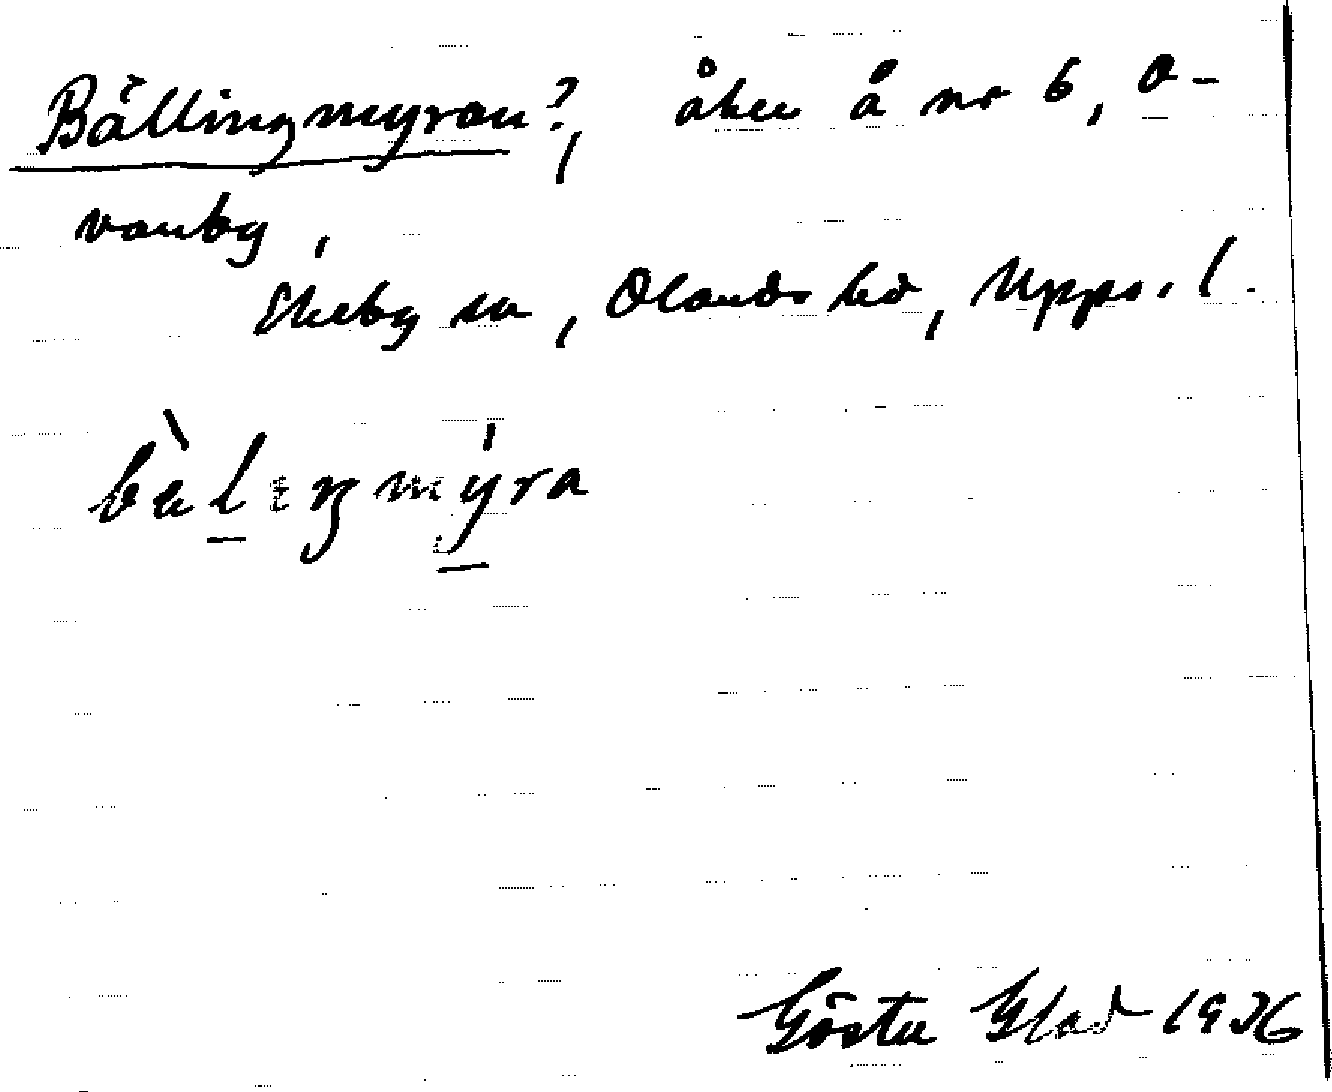 Bällingmyran?, åker å nr 6, O-
vanby,
Ekeby sn, Olands hd, Upps. l.
bèlıŋmýra
Gösta Glad 1936